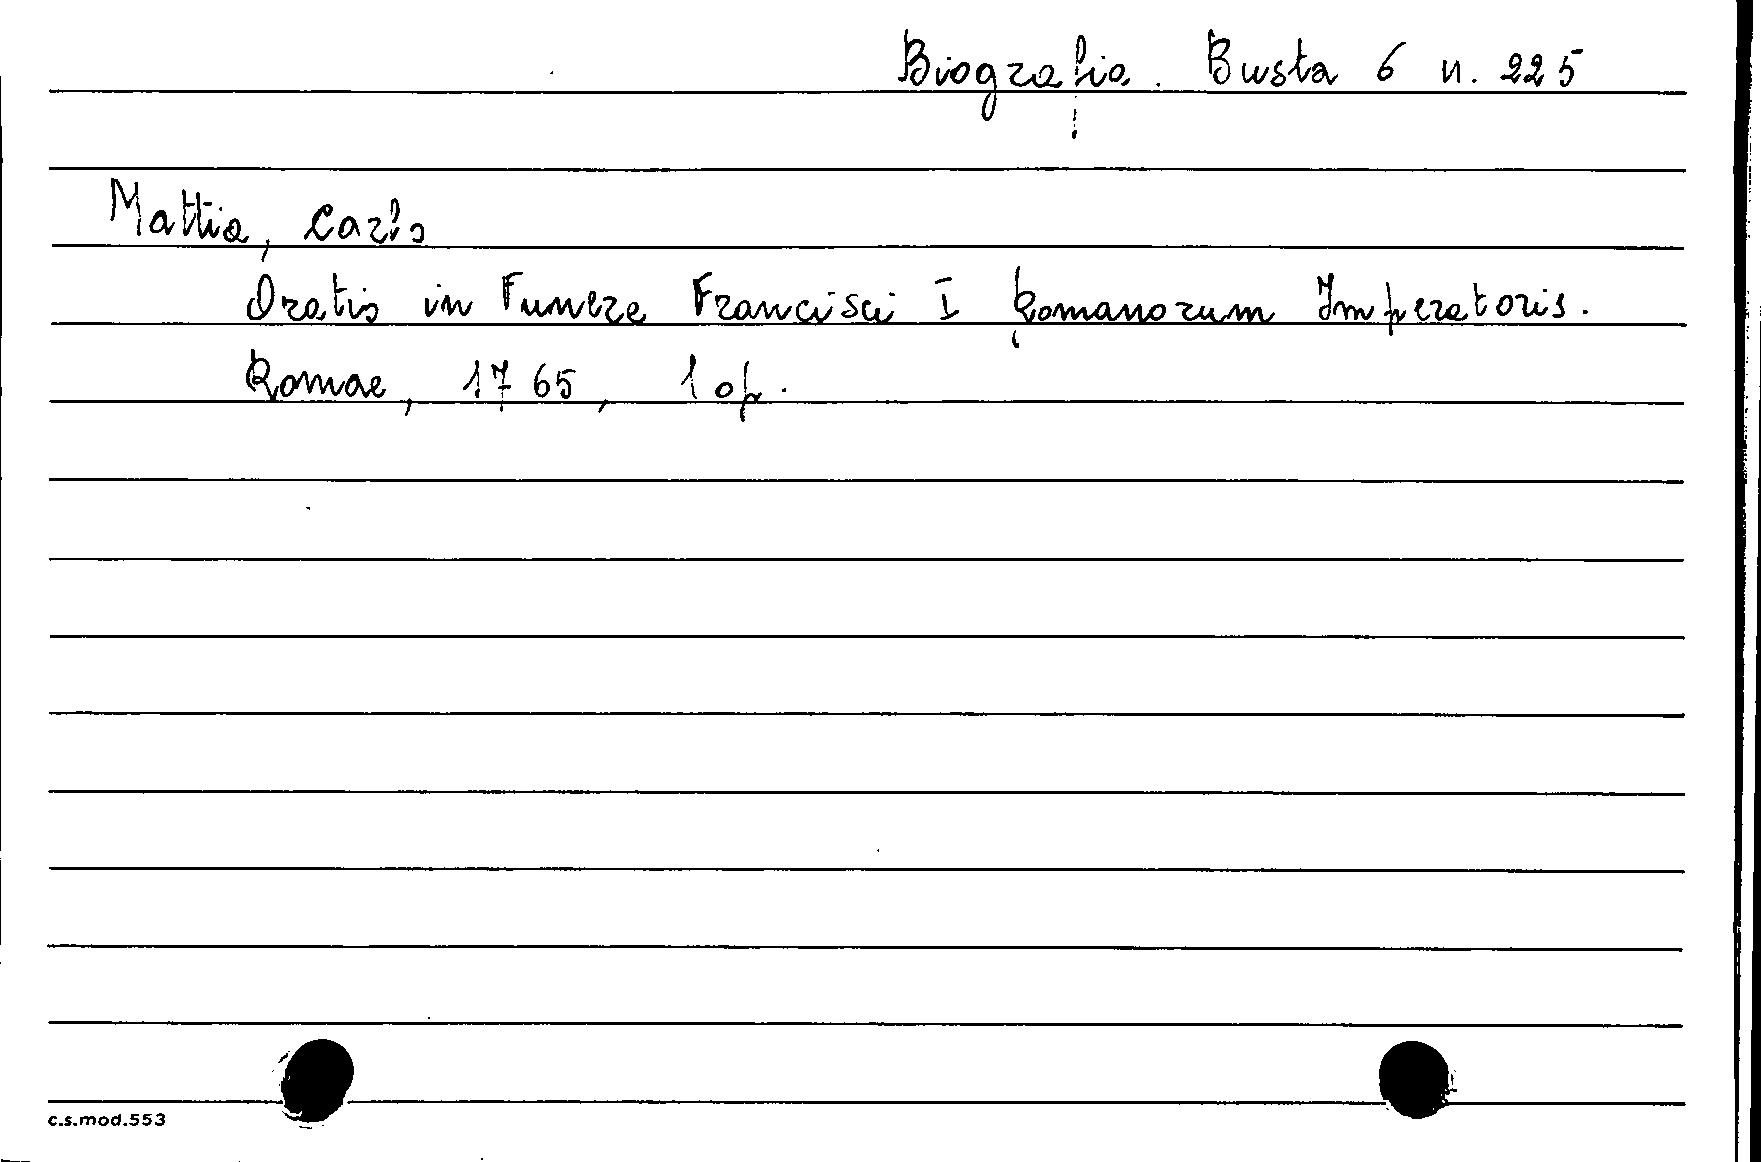 Biografia. Busta 6 n. 225
Mattia, Carlo
Oratio in Funere Francisci I Romanorum Imperatoris.
Romae, 1765, 1 op.
c.s.mod.553